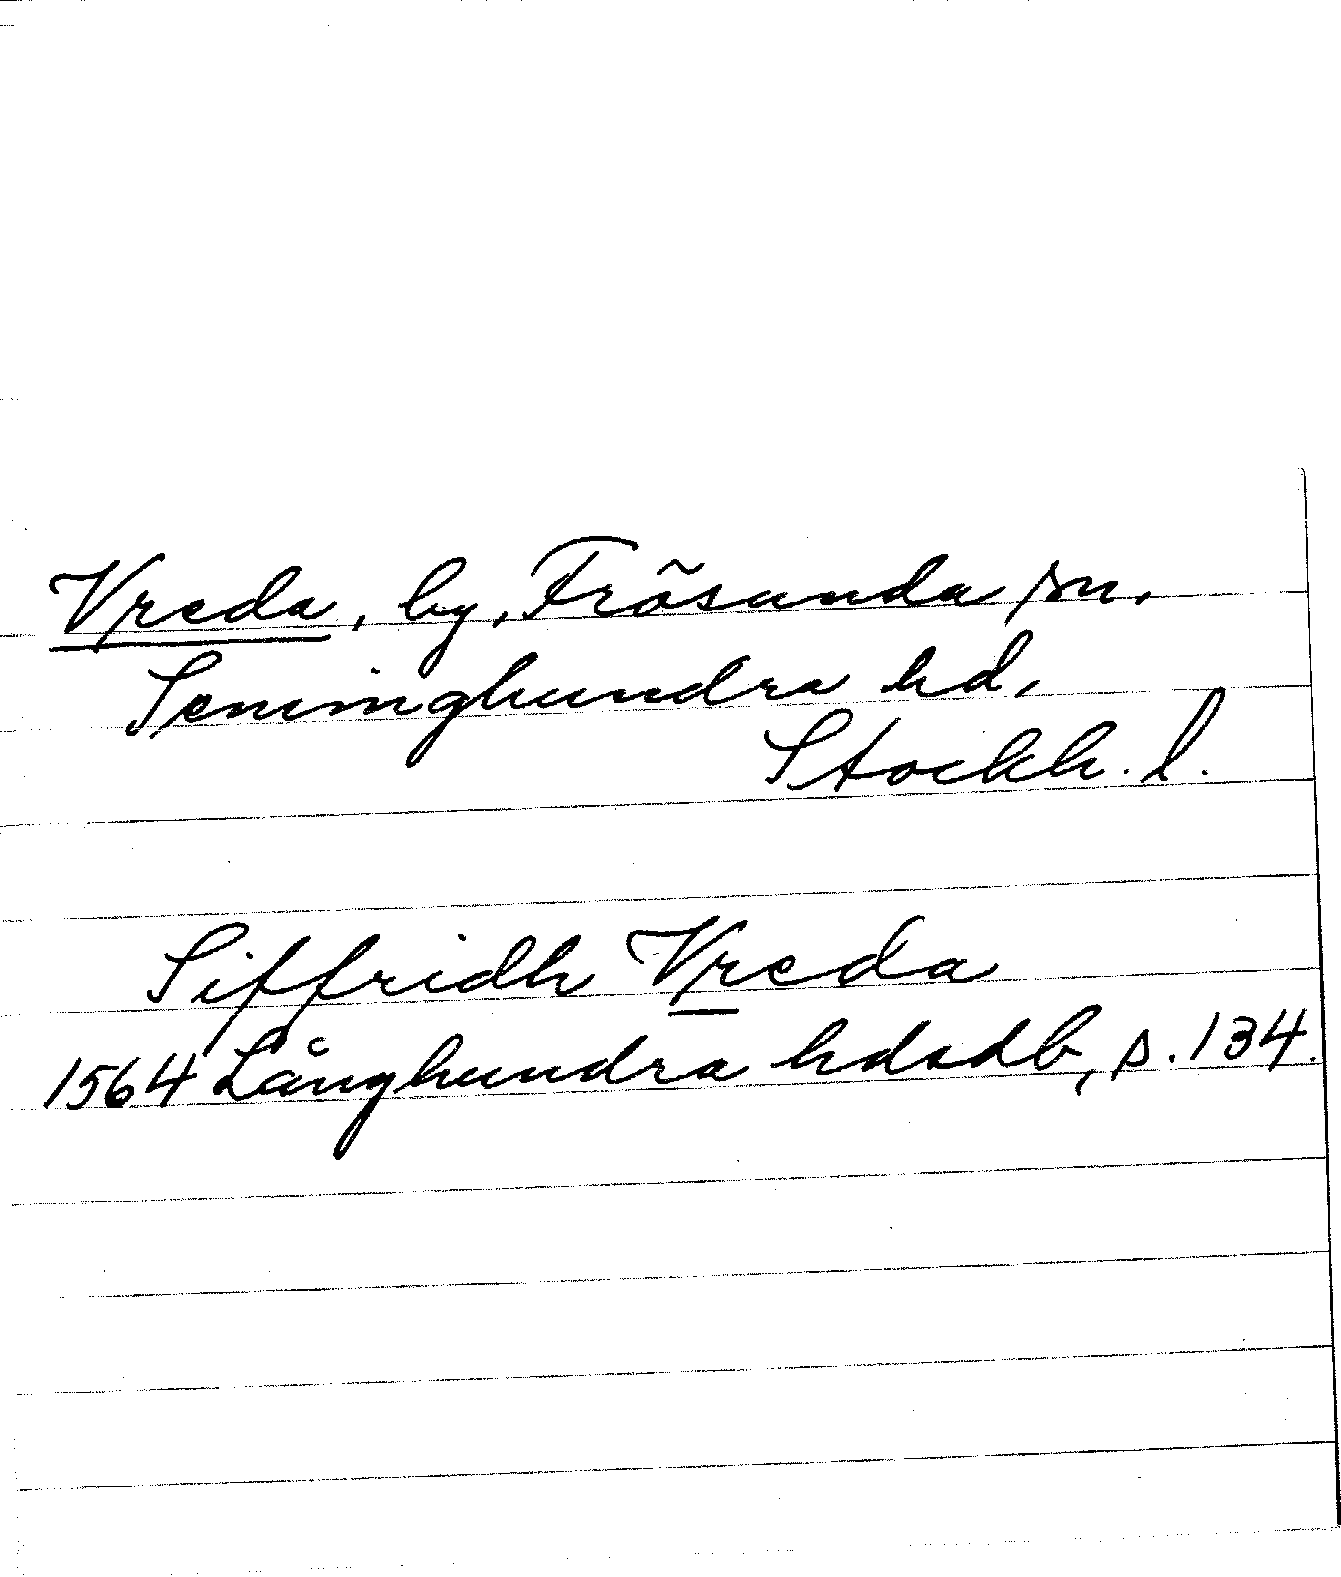 Vreda, by, Frösunda sn.
Seminghundra hd.
Stockh. l.
Siffridh Vreda
1564 Långhundra hdsdb, s. 134.